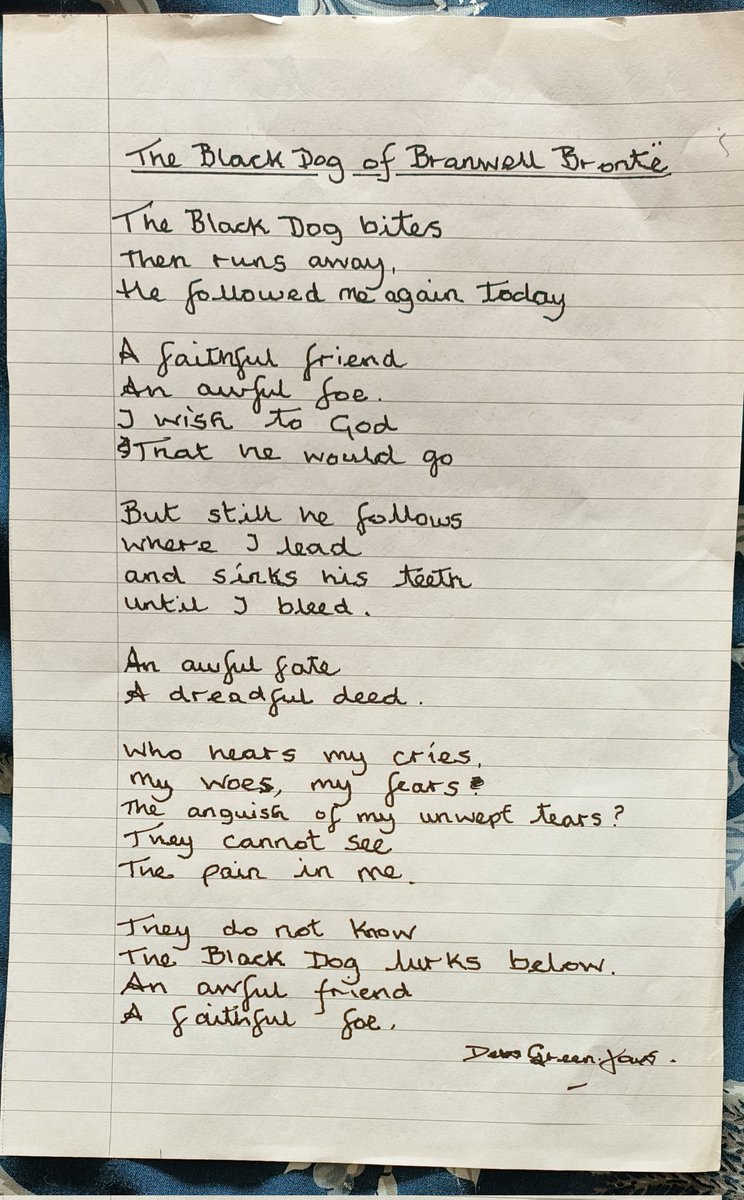 The Black Dog of Branwell Brontë
The Black Dog bites
Then runs away,
He followed me again today
A faithful friend
An awful foe.
I wish to God
That he would go
But still he follows
where I lead
and sinks his teeth
until I bleed.
An awful fate
A dreadful deed.
Who hears my cries,
My woes, my fears?
The anguish of my unwept tears?
They cannot see
The pain in me.
They do not know
The Black Dog lurks below.
An awful friend
A faithful foe.
Green